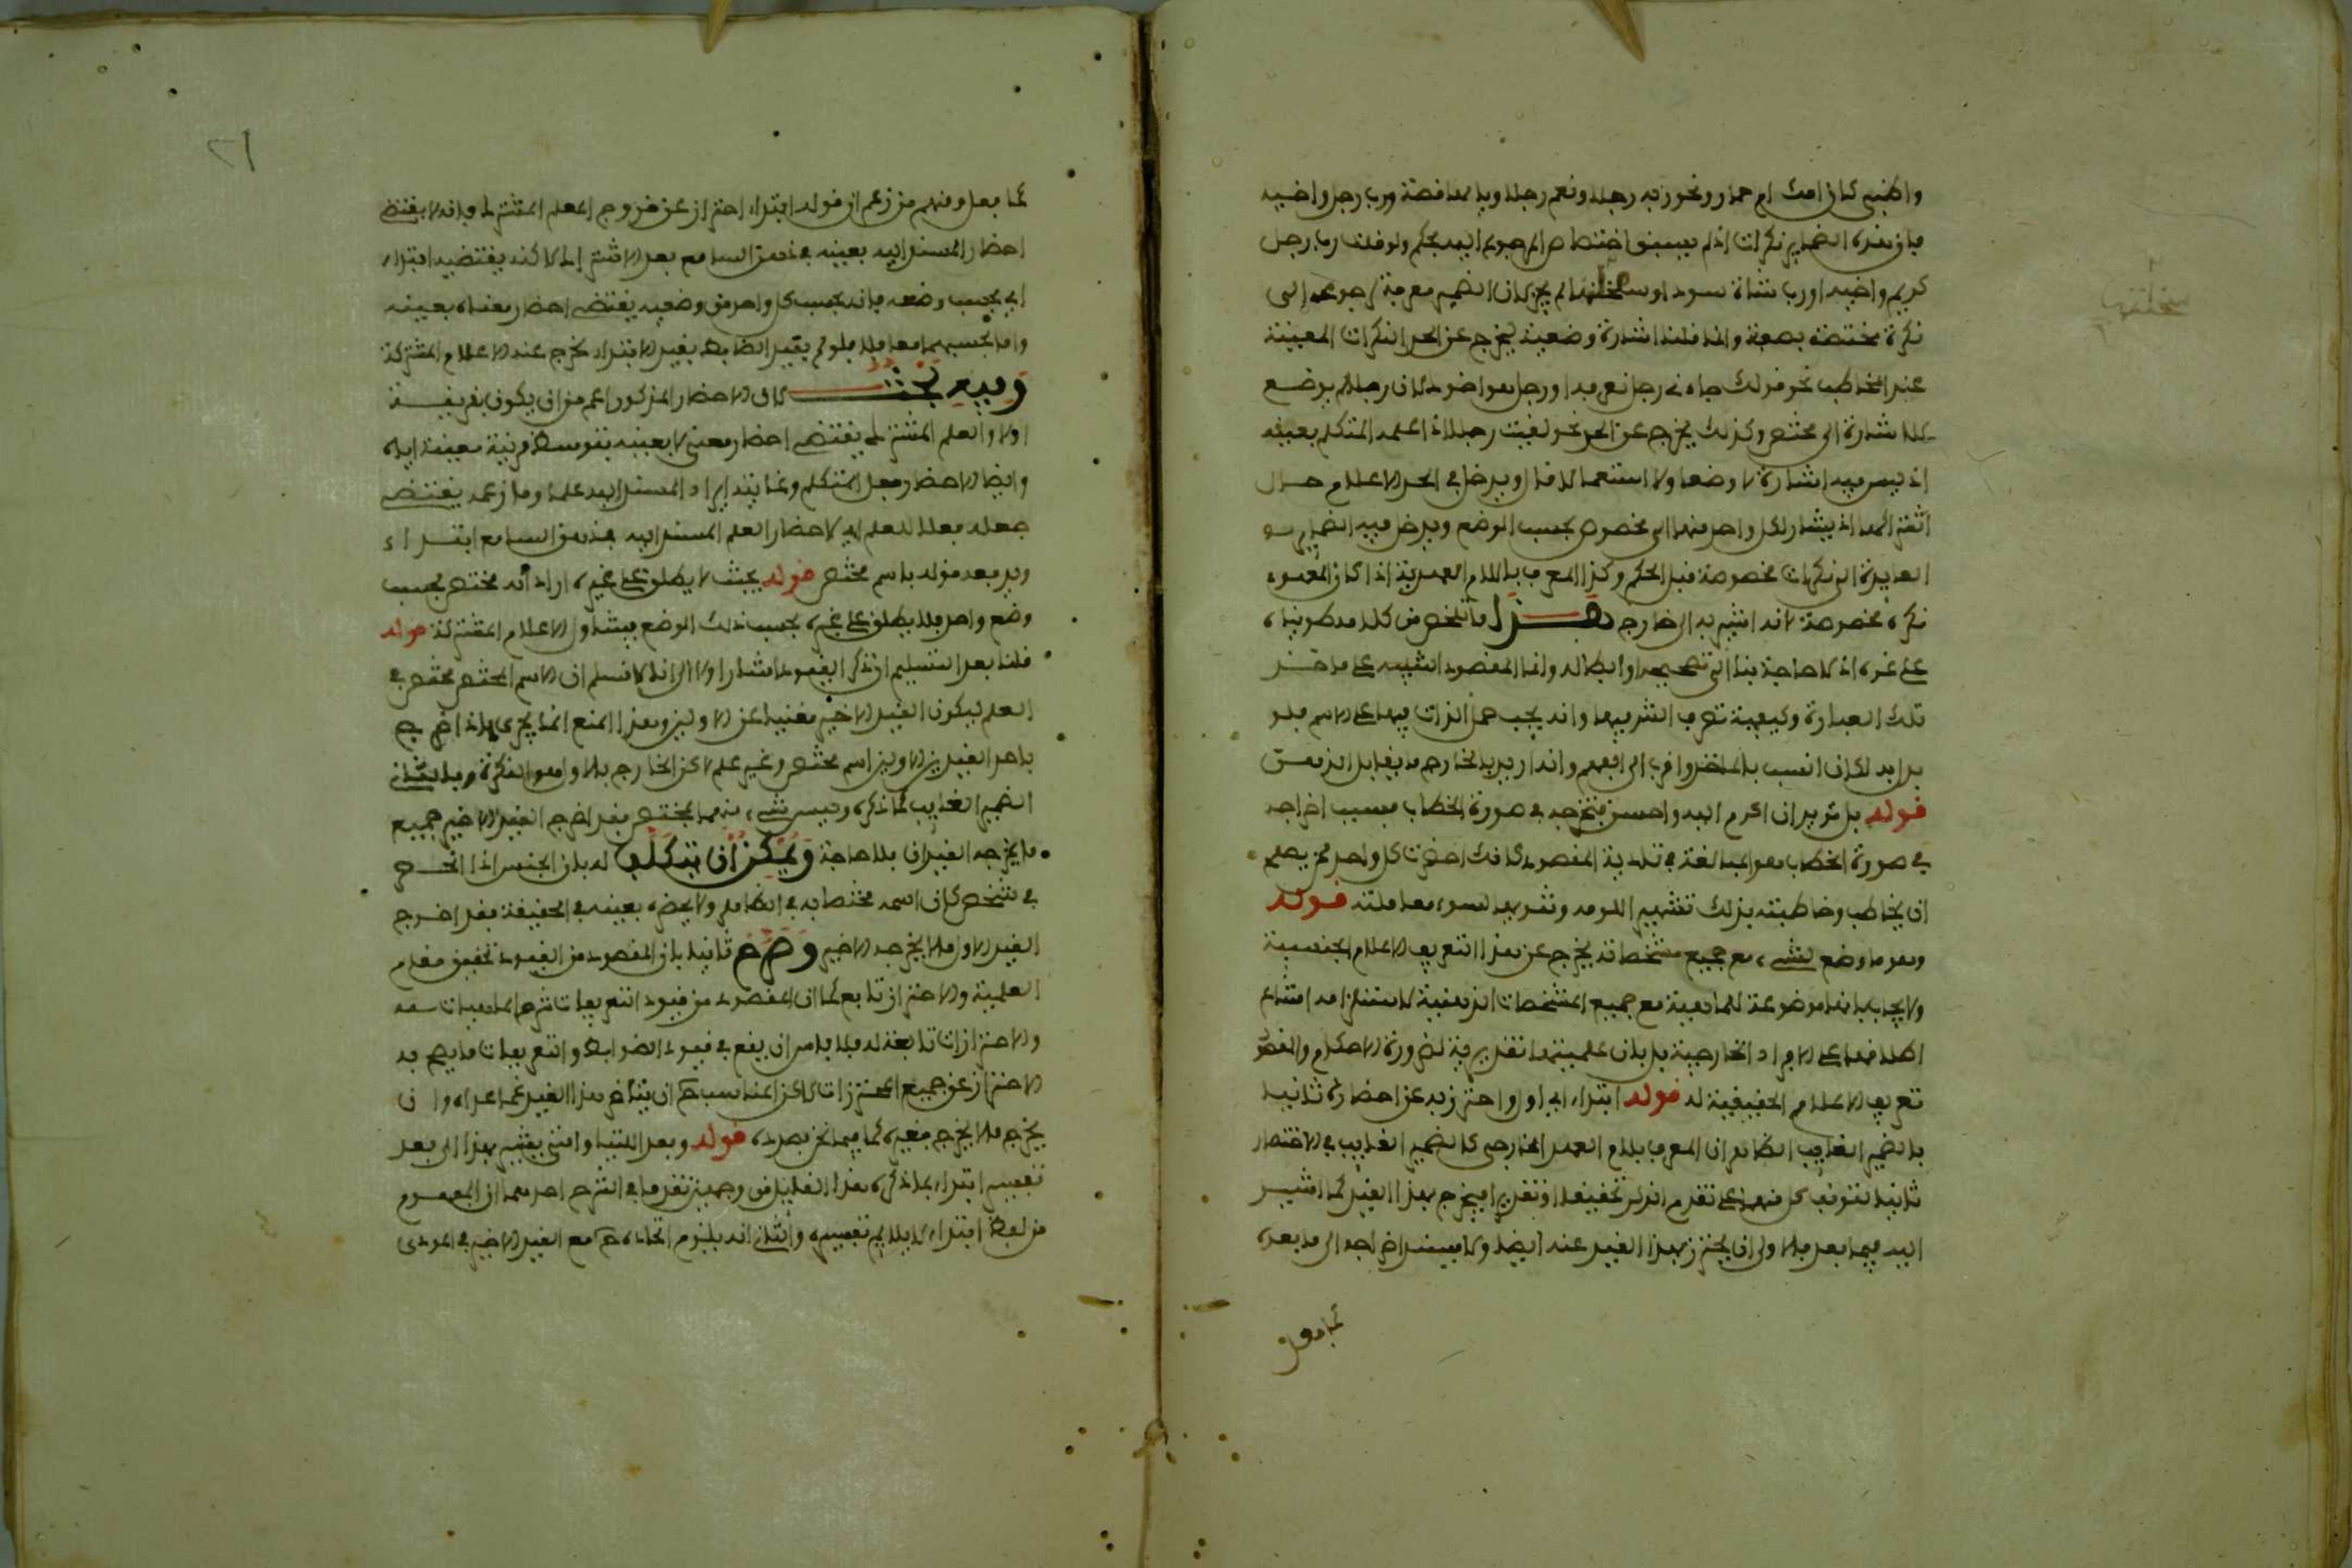 واظبى كان امك ام حمار ونحو ربه رجلا ونعم رجلا ويا لها قصة ورب رجل واخيه
فان هذه الضماير نكرات اذ لم يسبق اختصاص المرجوع اليه بحكم ولو قلت رب رجل
كريم واخيه او رب شاة سوداء وسخلتها لم يجز لان الضمير معرفة لرجوعه الى
نكرة مختصة بصفة وانما قلنا اشارة وضعية ليخرج عن الحد النكرات المعينة
عند المخاطب نحو قولك جاءني رجل تعرفه او رجل هو اخوك لان رجلا لم يوضع
للاشارة الى مختص وكذلك يخرج عن الحد نحو لقيت رجلا اذا علمه المتكلم بعينه
اذ ليس فيه اشارة لا وضعا ولا استعمالا قال ويدخل في الحد الاعلام حال
اشتراكها اذ يشار لكل واحد منها الى مخصوص بحسب الوضع ويدخل فيه الضماير
العايدة الى نكرات مخصوصة قبل الحكم وكذا المعرف باللام العهدية اذا كان المعهود
نكرة مخصوصة لانه اشير به الى خارج هذا ما تلخص من كلامه طويناه
على غره اذ لا حاجة بنا الى تصحيحه او ابطاله وانما المقصود التنبيه على ماخذ
تلك العبارة وكيفية تعرف الشر فيها وانه يجب حمل الذات فيها على الاسم فلو
بدل به لكان انسب بالماخذ واقرب الى الفهم وانه اريد بالخارج ما يقابل الذهن
قوله بل تريد ان اكرم اليه واحسن فتخرجه في صورة الخطاب فسبب اخراجه
في صورة الخطاب هو المبالغة في تادية المقصود كانك احضرت كل واحد ممن يصلح
ان يخاطب وخاطبته بذلك تشهيرا للومه وتقريعا لسوء معاملته قوله
وهو ما وضع لشيء مع جميع مشخصاته يخرج عن هذا التعريف الاعلام الجنسية
ولا يجاب بانها موضوعة للماهية مع جميع المشخصات الذهنية لاستلزامه امتناع
اطلاقها على الافراد الخارجية بل بان علميتها تقديرية لضرورة الاحكام والمقصود
تعريف الاعلام الحقيقية له قوله ابتداء اي اول واحترز به عن احضاره ثانيا
بالضمير الغايب الظاهر ان المعرف بلام العهد الخارجي كالضمير الغايب في الاختصار
ثانيا لتوقف كل منهما على تقدم الذكر تحقيقا او تقديرا فيخرج بهذا القيد كما اشير
اليه فيما بعد فالاولى ان يحترز بهذا القيد عنه ايضا ولا يسند اخراجه الى ما بعده
كما فعل
سخلتها
٢١
كما فعل ومنهم من زعم ان قوله ابتداء احتراز عن خروج العلم المشترك فانه لا يقتضي
احضار المسند اليه بعينه في ذهن السامع بعد الاشتراك لكنه يقتضيه ابتداء
اي بحسب وضعه فانه بحسب كل واحد من وضعيه يقتضي احضار معناه بعينه
واما بحسبهما معا فلا فلو لم يقيد الضابط بقيد الابتداء لخرج عنه الاعلام المشتركة
وفيه بحث لان الاحضار المذكور اعم من ان يكون بقرينة
اولا والعلم المشترك يقتضي احضار معنى لا بعينه بتوسط قرينة معينة اياه
وايضا الاحضار فعل المتكلم وغايته ايراد المسند اليه علما وما زعمه يقتضي
جعله فعلا للعلم اي لاحضار العلم المسند اليه في ذهن السامع ابتداء
ويدفعه قوله باسم مختص قوله بحيث لا يطلق على غيره اراد انه مختص بحسب
وضع واحد فلا يطلق على غيره بحسب ذلك الوضع فيتناول الاعلام المشتركة قوله
قلنا بعد التسليم ان ذكر القيود اشار اولا الى انا لا نسلم ان الاسم المختص مختص في
العلم ليكون القيد الاخير مغنيا عن الاولين وهذا المنع انما يجري اذا اخرج
باحد القيدين الاولين اسم مختص وغير علم لكن الخارج بالاول هو النكرة وبالثاني
الضمير الغايب كما ذكره وليس شيء منهما بمختص فقد اخرج القيد الاخير جميع
ما يخرجه القيدان بلا حاجة ويمكن ان يتكلف له بان الجنس اذا انحصر
في شخص كان اسمه مختصا به في الظاهر ولا يحضره بعينه في الحقيقة فقد اخرج
القيد الاول ما لا يخرجه الاخير وصرح ثانيا بان المقصود من القيود تحقيق مقام
العلمية والاحتراز تابع كما ان المقصود من قيود التعريفات شرح الماهيات
والاحترازات تابعة له فلا باس ان يقع في قيود الضوابط والتعريفات ما يصح به
الاحتراز عن جميع المحترزات لكن المناسب ح ان يتاخر هذا القيد عما عداه وان
يخرج ما لا يخرج بغيره كما فيما نحن بصدده قوله وبعد اللتيا والتي يشير بهذا الى بعد
تفسير ابتداء بما ذكره هذا القايل من وجهين تقدما في الشرح احدهما ان المفهوم
من لفظ ابتداء لا يلايم تفسيره والثاني انه يلزم اتحاده ح مع القيد الاخير في المودى